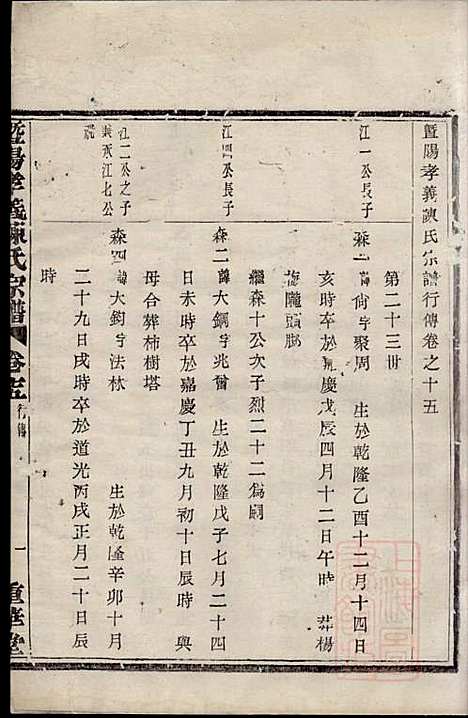 暨陽孝義陳氏宗譜行傳卷之十五
第二十三世
江一公長子
森一諱尚字聚周 生於乾隆乙酉十二月十四日
亥時卒於嘉慶戊辰四月十二日午時 葬楊
梅隴頭脚
繼森十公次子烈二十二為嗣
江四公長子
森二諱大鋼字兆曾 生於乾隆戊子七月二十四
日未時卒於嘉慶丁丑九月初十日辰時 與
母合葬柿樹塔
江二公之子
兼承江七公
祧
森四諱大鈞字法林 生於乾隆辛卯十月
二十九日戌時卒於道光丙戌正月二十日辰
時
暨陽孝義陳氏宗譜
卷十五
行傳
一
重華堂